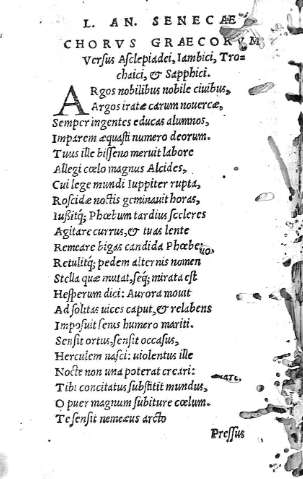 L. AN. SENECAE
CHORVS GRAECORVM
Versus Asclepiadei, Iambici, Tro-
chaici, & Sapphici.
ARgos nobilibus nobile ciuibus,
Argos iratæ carum nouercæ,
Semper ingentes educas alumnos,
Imparem æquasti numero deorum.
Tuus ille bisseno meruit labore
Allegi cœlo magnus Alcides,
Cui lege mundi Iuppiter rupta,
Roscidæ noctis geminauit horas,
Iussitq; Phœbum tardius sceleres
Agitare currus, & tuas lente
Remeare bigas candida Phœbe,
Retulitq; pedem alternis nomen
Stella quæ mutat, seq; mirata est
Hesperum dici: Aurora mouit
Ad solitas uices caput, & relabens
Imposuit senis humero mariti.
Sensit ortus, sensit occasus,
Herculem nasci: uiolentus ille
Nocte non una poterat creari:
Tibi concitatus substitit mundus,
O puer magnum subiture cœlum.
Te sensit nemeæus arcto
Pressus